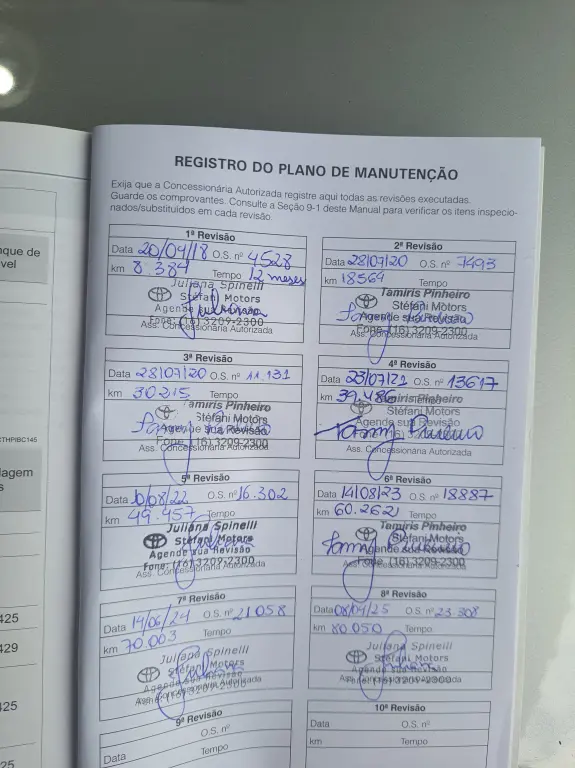 REGISTRO DO PLANO DE MANUTENÇÃO
Exija que a Concessionária Autorizada registre aqui todas as revisões executadas.
Guarde os comprovantes. Consulte a Seção 9-1 deste Manual para verificar os itens inspecio-
nados/substituídos em cada revisão.
1ª Revisão
Data 20/09/18 O.S. nº 4528
km 8.384 Tempo 12 meses
Juliana Spinelli
Stéfani Motors
Agende sua Revisão
Fone: (16) 3209-2300
Ass. Concessionária Autorizada
2ª Revisão
Data 28/07/20 O.S. nº 7493
km 18564 Tempo
Tamiris Pinheiro
Stéfani Motors
Agende sua Revisão
Fone: (16) 3209-2300
Ass. Concessionária Autorizada
3ª Revisão
Data 28/07/20 O.S. nº 11.131
km 30215 Tempo
Tamiris Pinheiro
Stéfani Motors
Agende sua Revisão
Fone: (16) 3209-2300
Ass. Concessionária Autorizada
4ª Revisão
Data 23/07/21 O.S. nº 13617
km 39.486 Tempo
Tamiris Pinheiro
Stéfani Motors
Agende sua Revisão
Ass. Concessionária Autorizada
5ª Revisão
Data 10/08/22 O.S. nº 16.302
km 49.457 Tempo
Juliana Spinelli
Stéfani Motors
Agende sua Revisão
Fone: (16) 3209-2300
Ass. Concessionária Autorizada
6ª Revisão
Data 14/08/23 O.S. nº 18887
km 60.262 Tempo
Tamiris Pinheiro
Stéfani Motors
Agende sua Revisão
Fone: (16) 3209-2300
Ass. Concessionária Autorizada
7ª Revisão
Data 14/06/24 O.S. nº 21058
km 70.003 Tempo
Juliana Spinelli
Stéfani Motors
Agende sua Revisão
Fone: (16) 3209-2300
Ass. Concessionária Autorizada
8ª Revisão
Data 08/04/25 O.S. nº 23.308
km 80.050 Tempo
Juliana Spinelli
Stéfani Motors
Agende sua Revisão
Fone: (16) 3209-2300
Ass. Concessionária Autorizada
9ª Revisão
Data O.S. nº
Tempo
10ª Revisão
O.S. nº
km Tempo
nque de
vel
THPIBC145
lagem
s
425
429
425
25